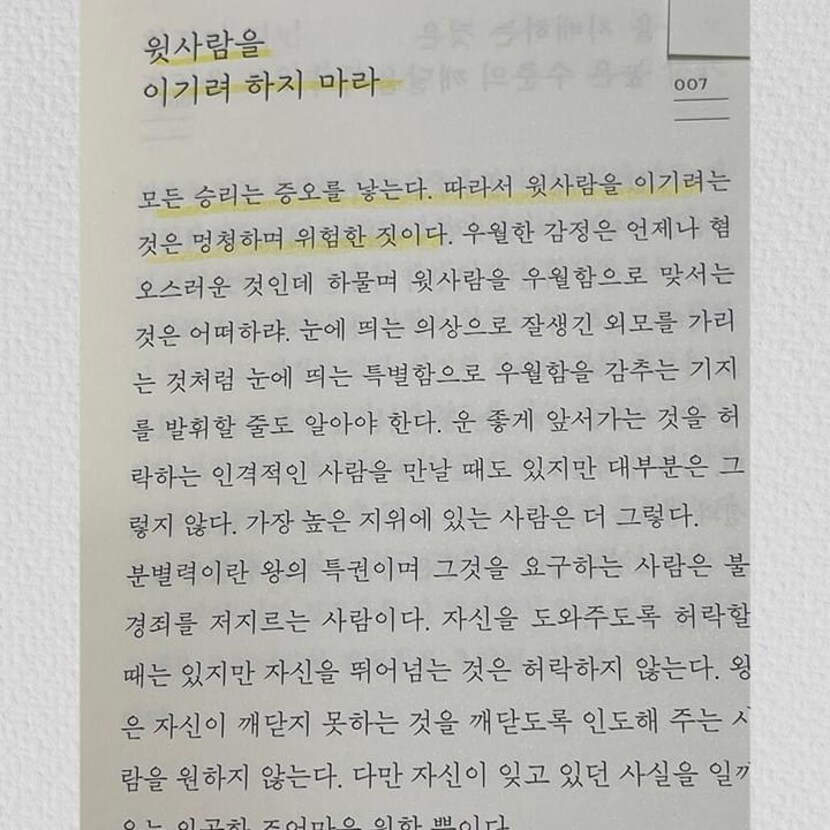 윗사람을
이기려 하지 마라
007
모든 승리는 증오를 낳는다. 따라서 윗사람을 이기려는
것은 멍청하며 위험한 짓이다. 우월한 감정은 언제나 혐
오스러운 것인데 하물며 윗사람을 우월함으로 맞서는
것은 어떠하랴. 눈에 띄는 의상으로 잘생긴 외모를 가리
는 것처럼 눈에 띄는 특별함으로 우월함을 감추는 기지
를 발휘할 줄도 알아야 한다. 운 좋게 앞서가는 것을 허
락하는 인격적인 사람을 만날 때도 있지만 대부분은 그
렇지 않다. 가장 높은 지위에 있는 사람은 더 그렇다.
분별력이란 왕의 특권이며 그것을 요구하는 사람은 불
경죄를 저지르는 사람이다. 자신을 도와주도록 허락할
때는 있지만 자신을 뛰어넘는 것은 허락하지 않는다. 왕
은 자신이 깨닫지 못하는 것을 깨닫도록 인도해 주는
람을 원하지 않는다. 다만 자신이 잊고 있던 사실을
위한 뿐이다